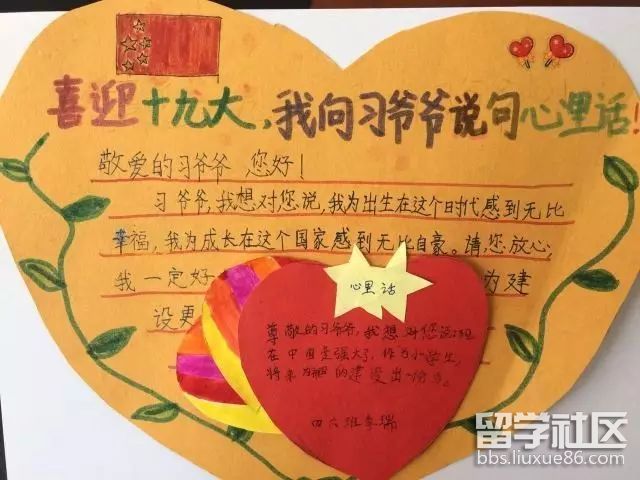 喜迎十九大,我向习爷爷说句心里话!
敬爱的习爷爷 您好!
习爷爷,我想对您说,我为出生在这个时代感到无比
幸福,我为成长在这个国家感到无比自豪。请您放心,
我一定好
为建
设更
心里话
尊敬的习爷爷,我想对您说:现
在中国变强大了,作为小学生,
将来为祖国的建设出一份力。
四六班李瑞
留学社区
bbs.liuxue86.com